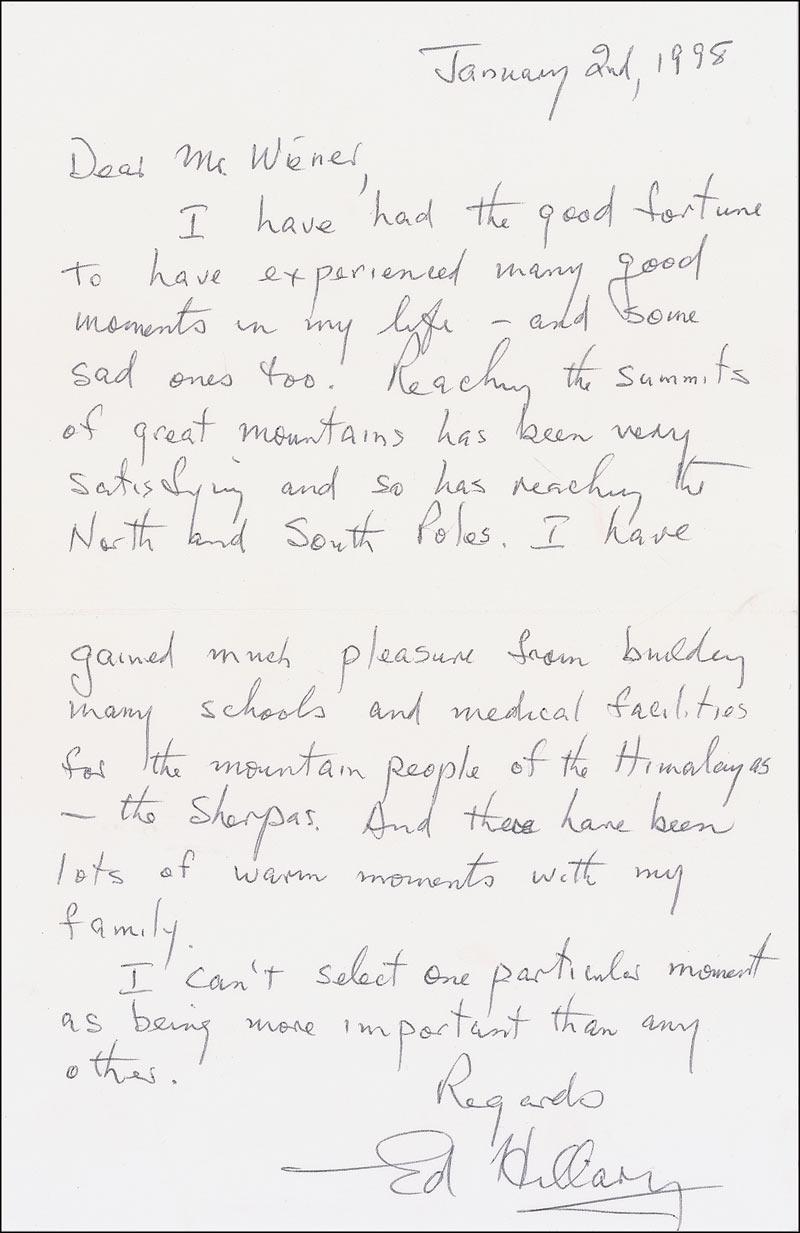 January 2nd, 1998
Dear Mr. Wiener,
I have had the good fortune
to have experienced many good
moments in my life – and some
sad ones too. Reaching the summits
of great mountains has been very
satisfying and so has reaching the
North and South Poles. I have
gained much pleasure from building
many schools and medical facilities
for the mountain people of the Himalayas
– the Sherpas. And there have been
lots of warm moments with my
family.
I can't select one particular moment
as being more important than any
other.
Regards
Ed Hillary